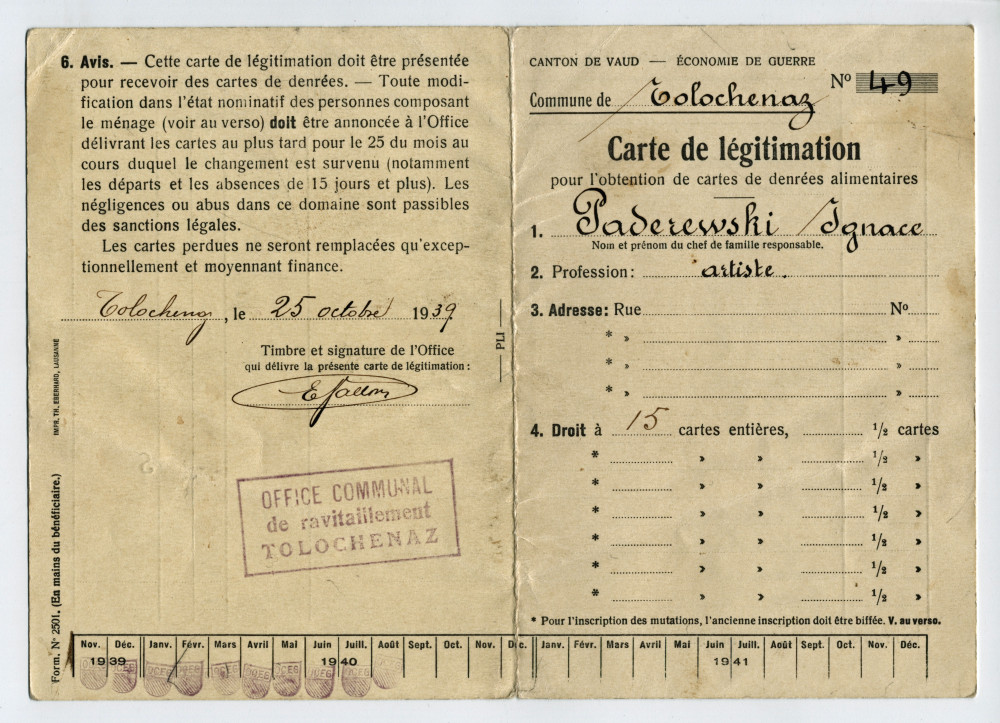 6. Avis. — Cette carte de légitimation doit être présentée
pour recevoir des cartes de denrées. — Toute modi-
fication dans l'état nominatif des personnes composant
le ménage (voir au verso) doit être annoncée à l'Office
délivrant les cartes au plus tard pour le 25 du mois au
cours duquel le changement est survenu (notamment
les départs et les absences de 15 jours et plus). Les
négligences ou abus dans ce domaine sont passibles
des sanctions légales.
Les cartes perdues ne seront remplacées qu'excep-
tionnellement et moyennant finance.
Tolochenaz, le 25 octobre 1939
Timbre et signature de l'Office
qui délivre la présente carte de légitimation :
OFFICE COMMUNAL
de ravitaillement
TOLOCHENAZ
IMPR. TH. EBERHARD, LAUSANNE
Form. N° 2501. (En mains du bénéficiaire.)
PLI
CANTON DE VAUD — ÉCONOMIE DE GUERRE
N° 49
Commune de Tolochenaz
Carte de légitimation
pour l'obtention de cartes de denrées alimentaires
1. Paderewski Ignace
Nom et prénom du chef de famille responsable.
2. Profession : artiste.
3. Adresse : Rue N°
* » »
* » »
* » »
4. Droit à 15 cartes entières, 1/2 cartes
* » » 1/2 »
* » » 1/2 »
* » » 1/2 »
* » » 1/2 »
* » » 1/2 »
* » » 1/2 »
* Pour l'inscription des mutations, l'ancienne inscription doit être biffée. V. au verso.
Nov. Déc. Janv. Févr. Mars Avril Mai Juin Juill. Août Sept. Oct. Nov. Déc. Janv. Févr. Mars Avril Mai Juin Juill. Août Sept. Oct. Nov. Déc.
1939 1940 1941